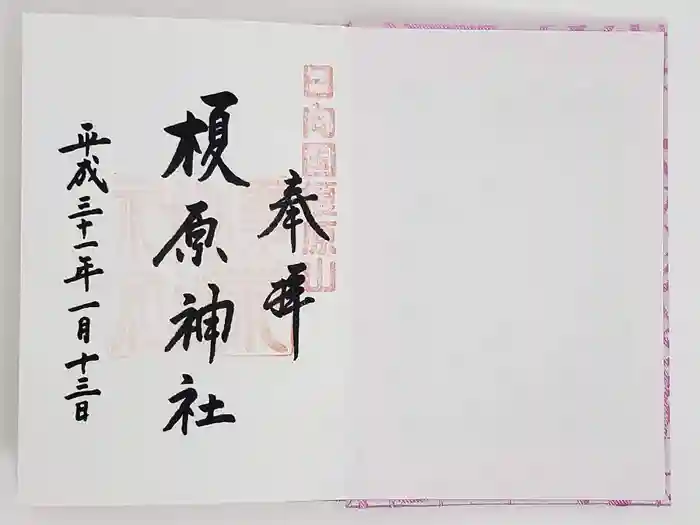 日向国榎原山
奉拝
榎原神社
平成三十一年一月十三日